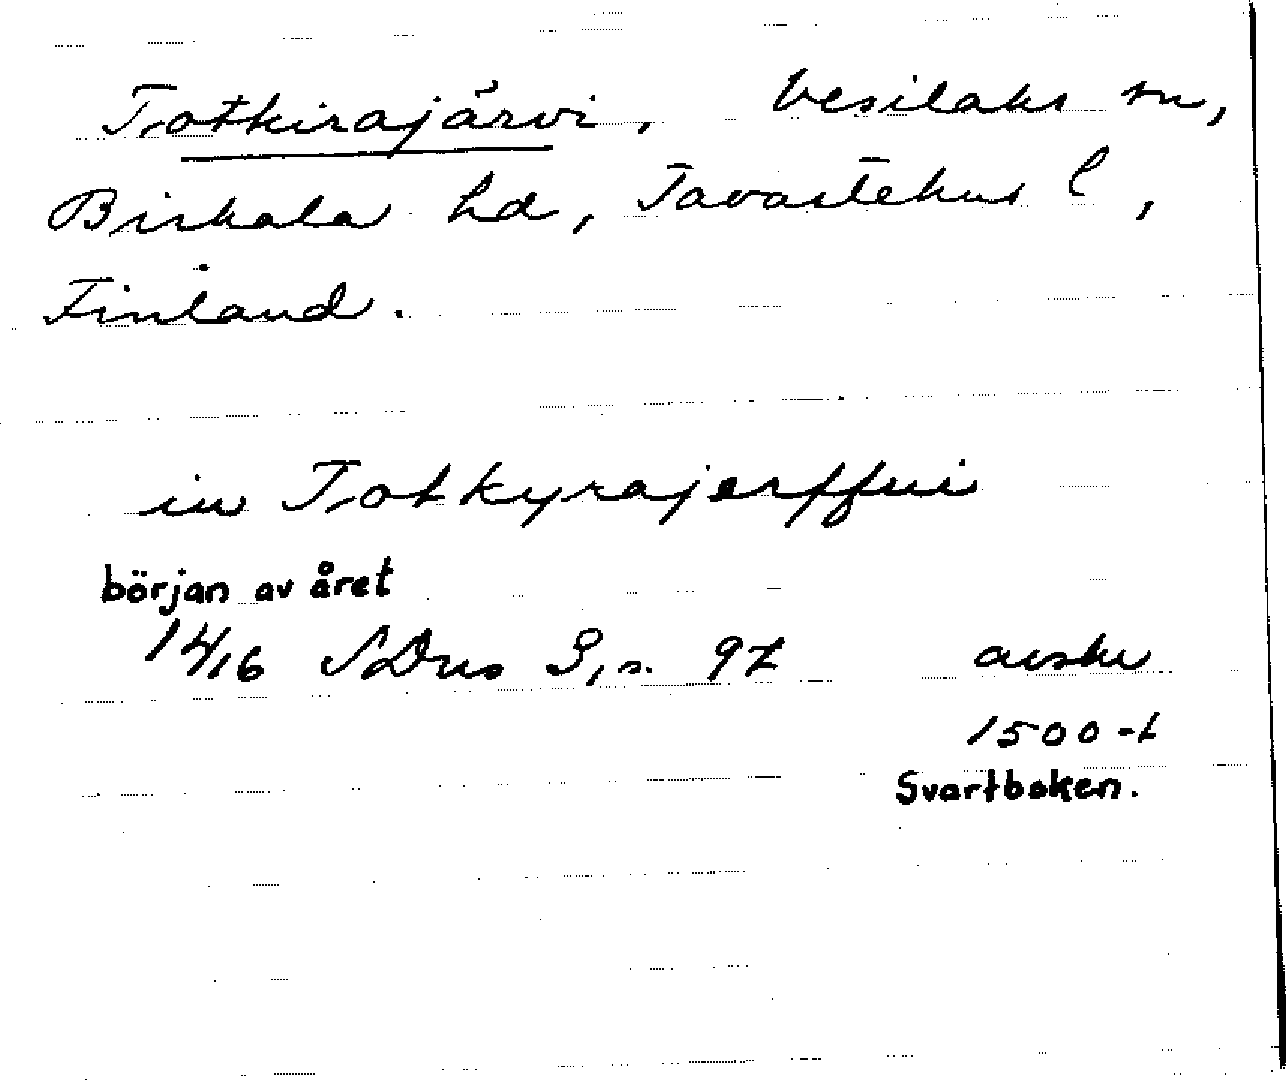 Totkirajärvi, Vesilaks sn,
Birkala hd, Tavastehus l,
Finland.
in Totkyrajerffui
början av året
1416 SDns 3, s. 97 avskr
1500-t
Svartboken.